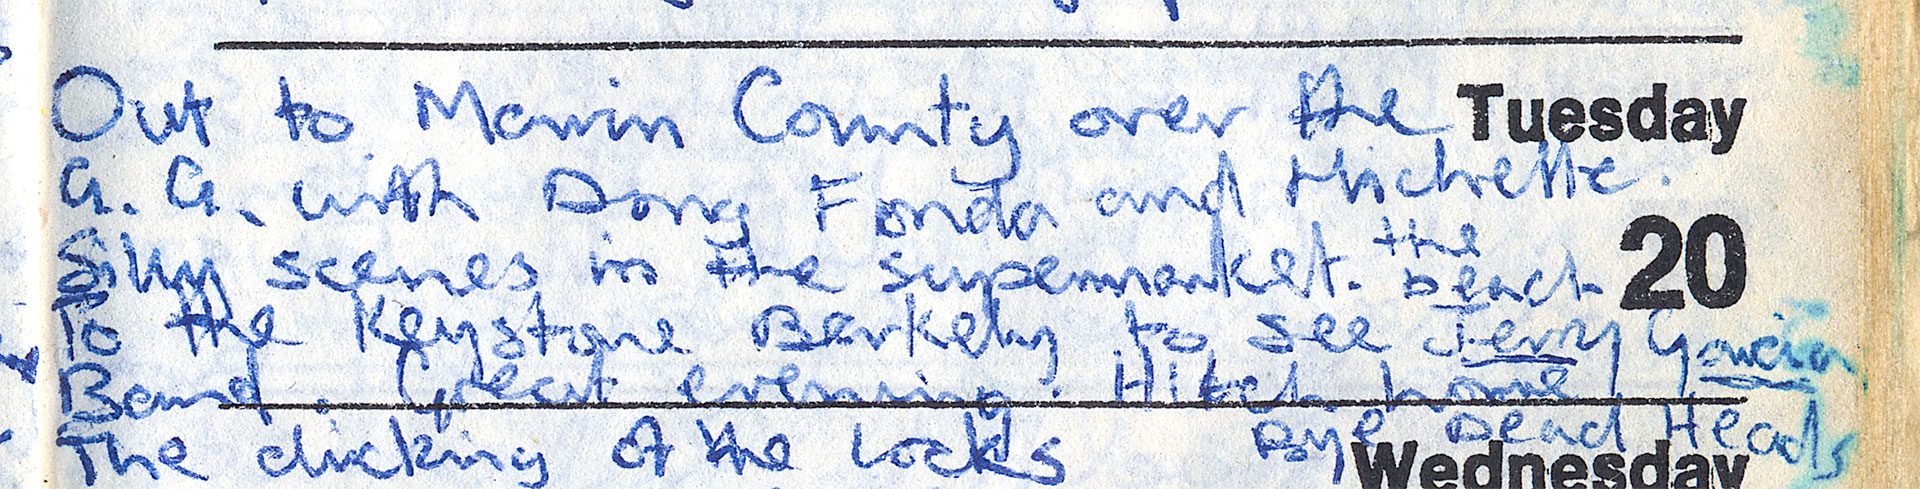 Out to Marin County over the Tuesday
G. G. with Doug Fonda and Michelle.
Silly scenes in the supermarket. the beach 20
To the Keystone Berkely to see Jerry Garcia
Band. Great evening. Hitch home
The clicking of the locks Bye Dead Heads
Wednesday